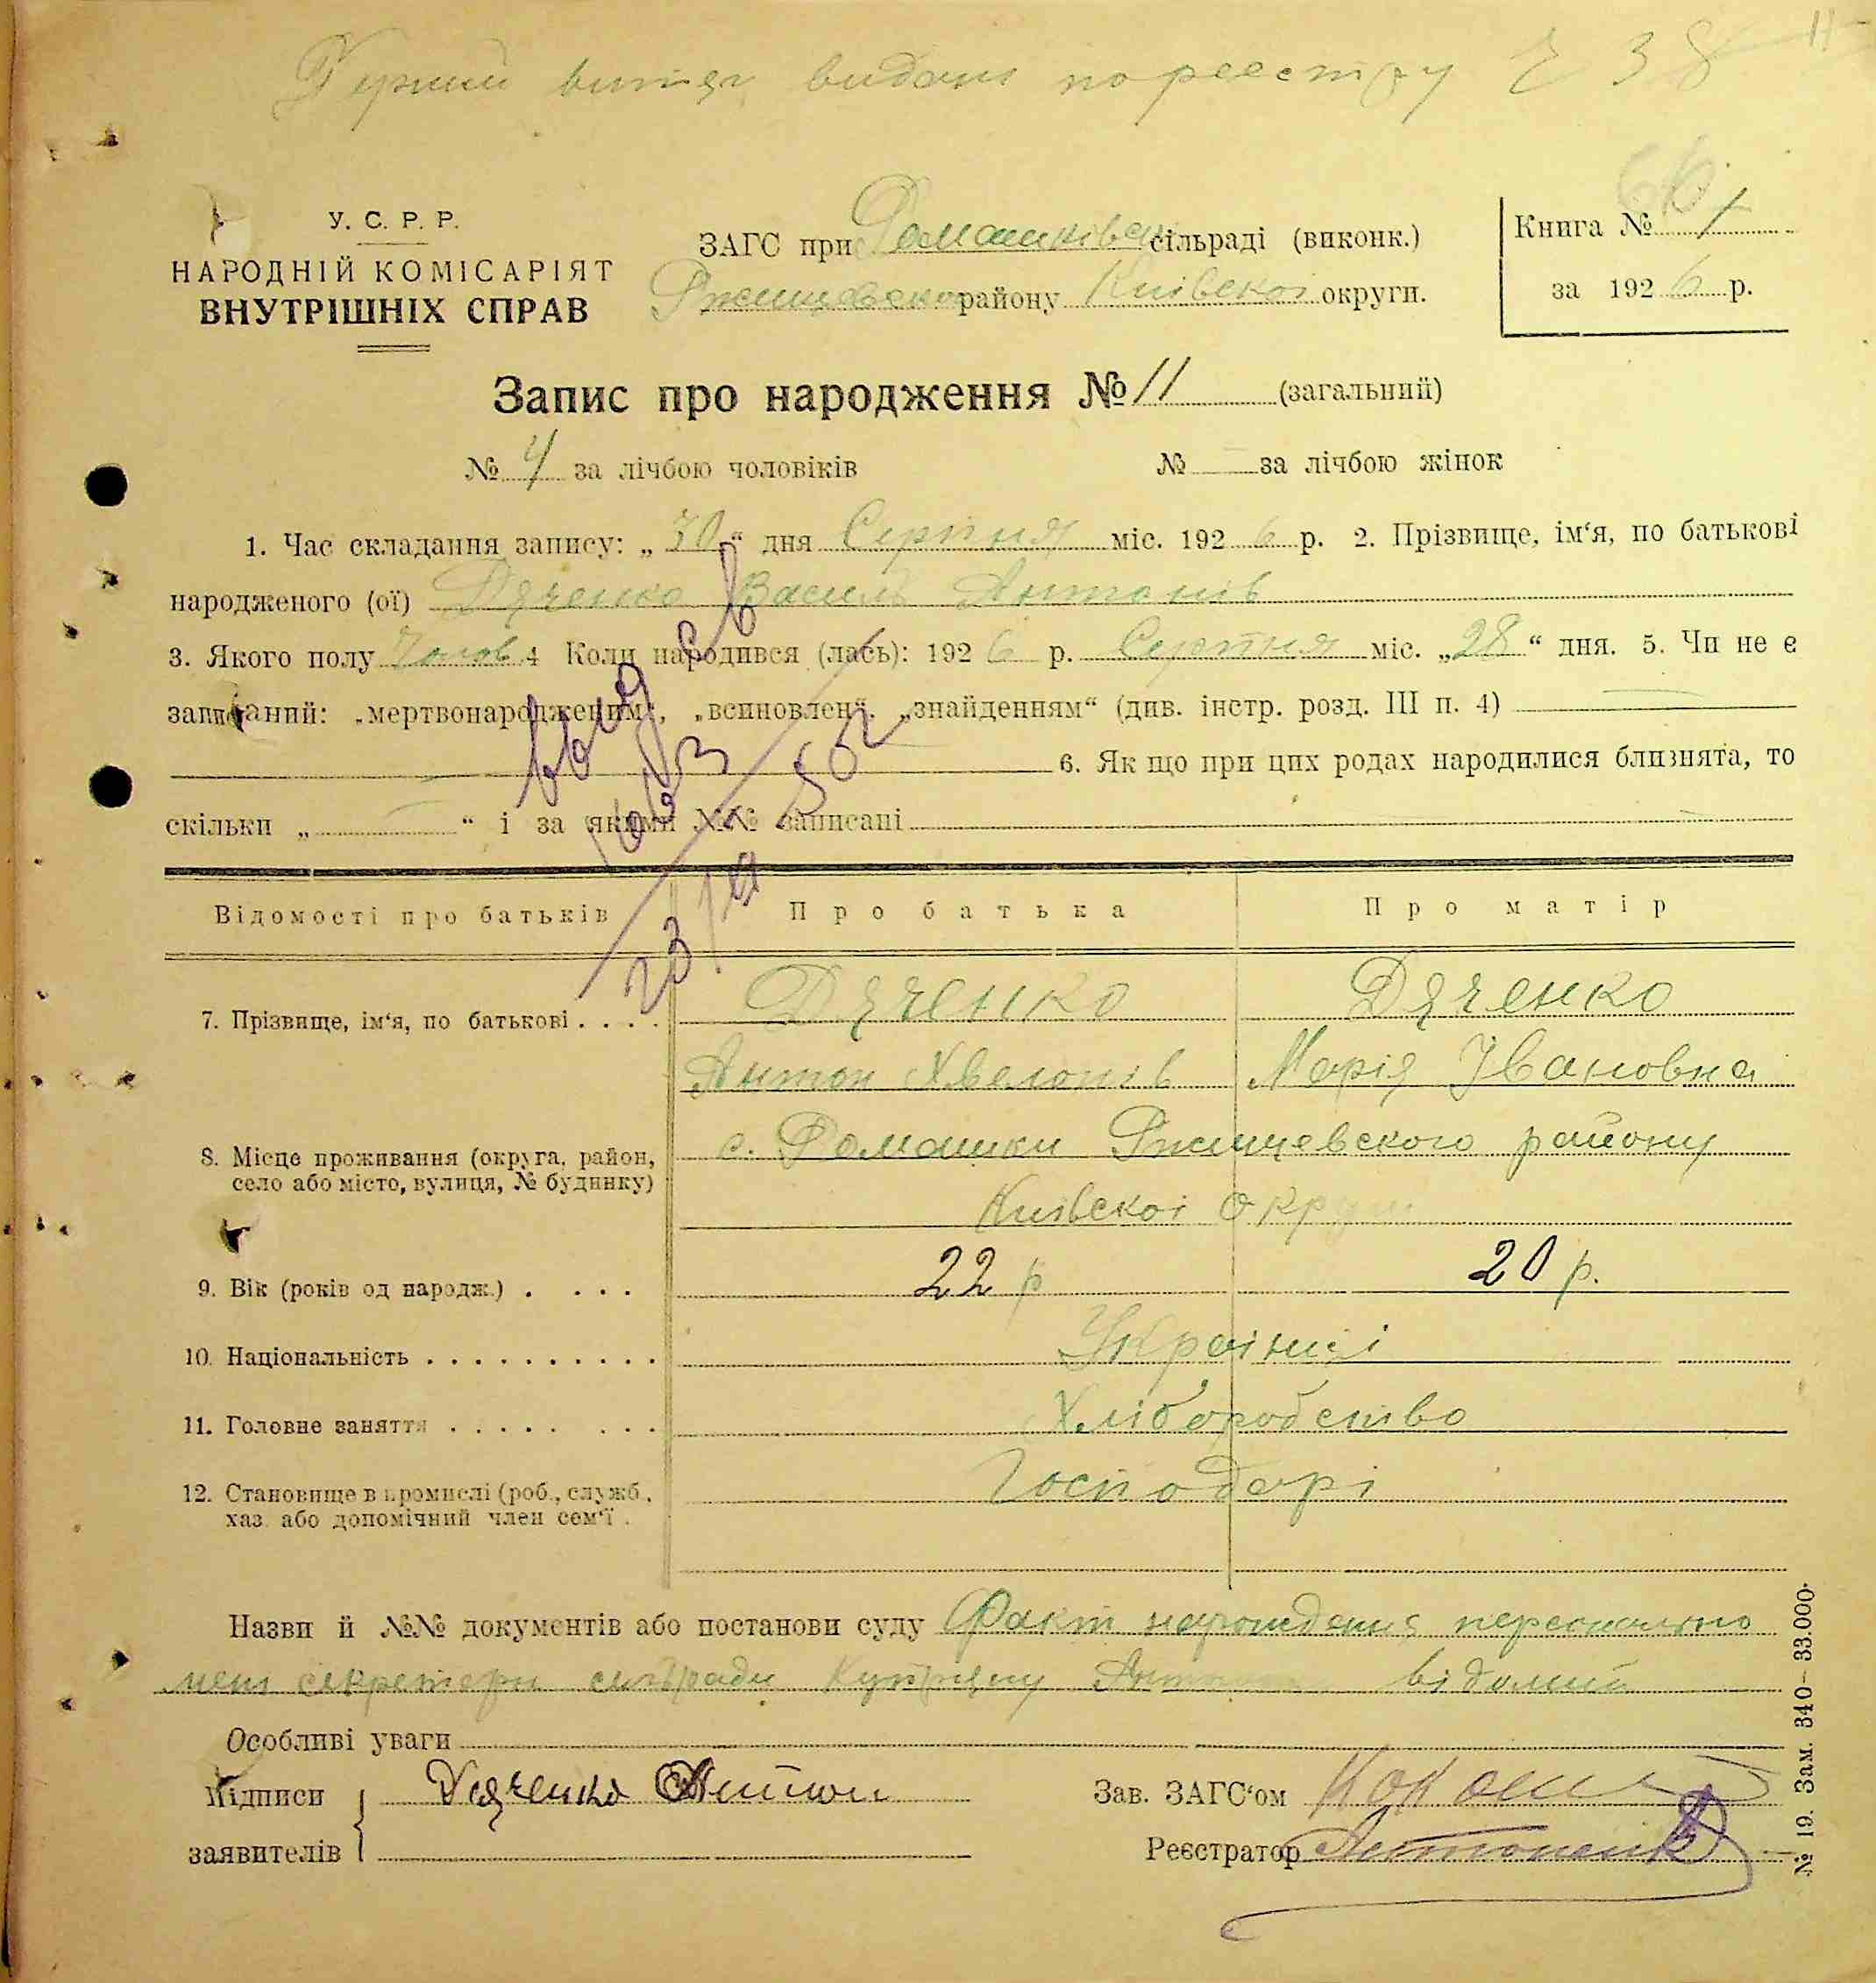 витяг видан по реестру Ч 38
11
У. С. Р. Р.
НАРОДНІЙ КОМІСАРІЯТ
ВНУТРІШНІХ СПРАВ
ЗАГС при Ромашківск сільраді (виконк.)
Ржищевско району Київскоі округи.
Книга № 1
за 1926 р.
Запис про народження № 11 (загальний)
№ 4 за лічбою чоловіків № — за лічбою жінок
1. Час складання запису: „30“ дня Серпня міс. 1926 р. 2. Прізвище, ім‘я, по батькові
народженого (ої) Дяченко Василь Антонів
3. Якого полу Чолов. 4 Коли народився (лась): 1926 р. Серпня міс. „28“ дня. 5. Чи не є
записаний: „мертвонародженим“, „всиновлен“, „знайденням“ (див. інстр. розд. III п. 4)
6. Як що при цих родах народилися близнята, то
скільки „ “ і за якими №№ записані
Відомості про батьків Про батька Про матір
7. Прізвище, ім‘я, по батькові . . . . Дяченко Дяченко
Антон Марія Івановна
8. Місце проживання (округа, район, село або місто, вулиця, № будинку) с. Ромашки Ржищевского району
Київскоі Округи
9. Вік (років од народж.) . . . . 22 р 20 р.
10. Національність . . . . . . . . . . Українці
11. Головне заняття . . . . . . . . Хліборобство
12. Становище в промислі (роб., служб., хаз. або допомічний член сем‘ї . Господарі
Назви й №№ документів або постанови суду Факт народження персонально
мені секретарю сільради відомий
Особливі уваги
Підписи заявителів Дяченко Антон
Зав. ЗАГС‘ом
Реєстратор
№ 19. Зам. 340–33.000.